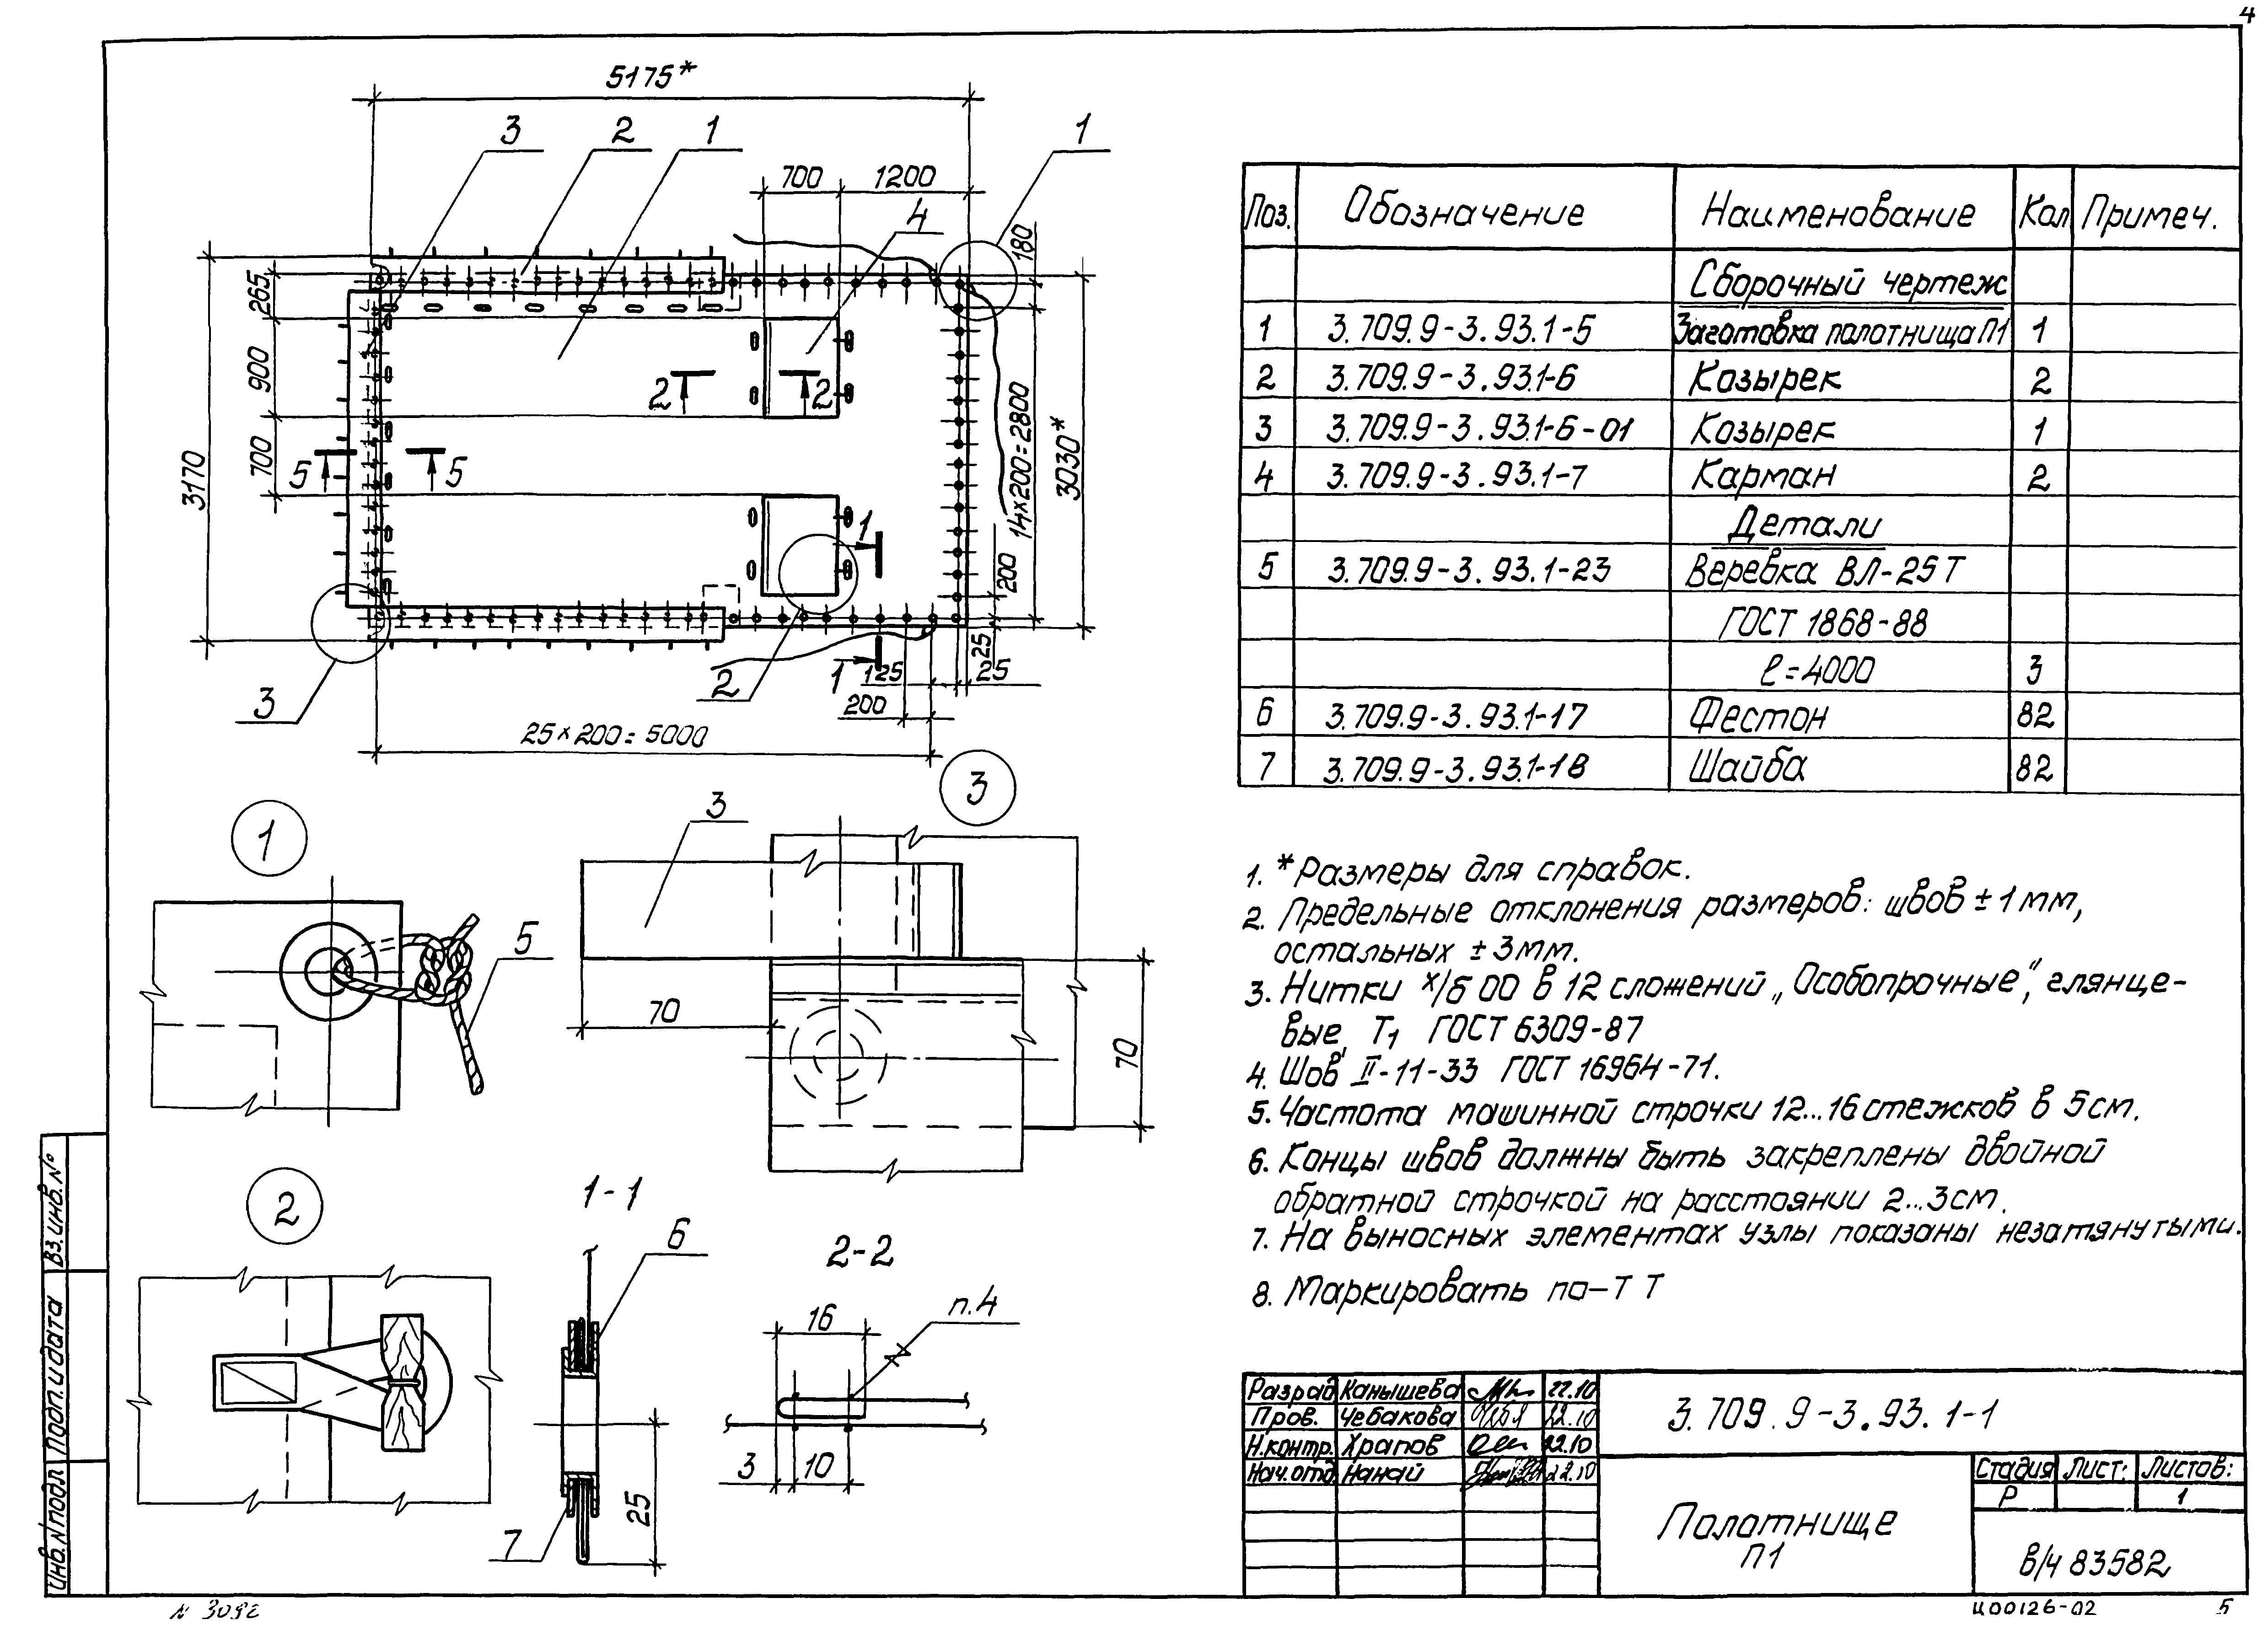 4
5175*
3
2
1
1
700
1200
4
180
265
900
700
3170
2
2
5
5
14×200=2800
3030*
1
200
25
2
1
125
25
200
3
25×200=5000
Поз.
Обозначение
Наименование
Кол
Примеч.
Сборочный чертеж
1 3.709.9-3.93.1-5 Заготовка полотнища П1 1
2 3.709.9-3.93.1-6 Козырек 2
3 3.709.9-3.93.1-6-01 Козырек 1
4 3.709.9-3.93.1-7 Карман 2
Детали
5 3.709.9-3.93.1-23 Веревка ВЛ-25Т
ГОСТ 1868-88
ℓ=4000 3
6 3.709.9-3.93.1-17 Фестон 82
7 3.709.9-3.93.1-18 Шайба 82
1
5
3
3
70
70
2
1-1
6
7
25
2-2
16
п.4
3
10
1. *Размеры для справок.
2. Предельные отклонения размеров: швов ±1мм,
остальных ±3мм.
3. Нитки х/б 00 в 12 сложений „Особопрочные“, глянце-
вые, Т1 ГОСТ 6309-87
4. Шов II-11-33 ГОСТ 16964-71.
5. Частота машинной строчки 12...16 стежков в 5см.
6. Концы швов должны быть закреплены двойной
обратной строчкой на расстоянии 2...3см.
7. На выносных элементах узлы показаны незатянутыми.
8. Маркировать по-ТТ
Разраб Канышева 22.10
Пров. Чебакова 22.10
Н.контр. Храпов 22.10
Нач.отд Нанай 22.10
3.709.9-3.93.1-1
Полотнище
П1
Стадия Лист: Листов:
Р 1
в/ч 83582
Вз.инв.N°
Подп. и дата
Инв.N подл
ц00126-02
5